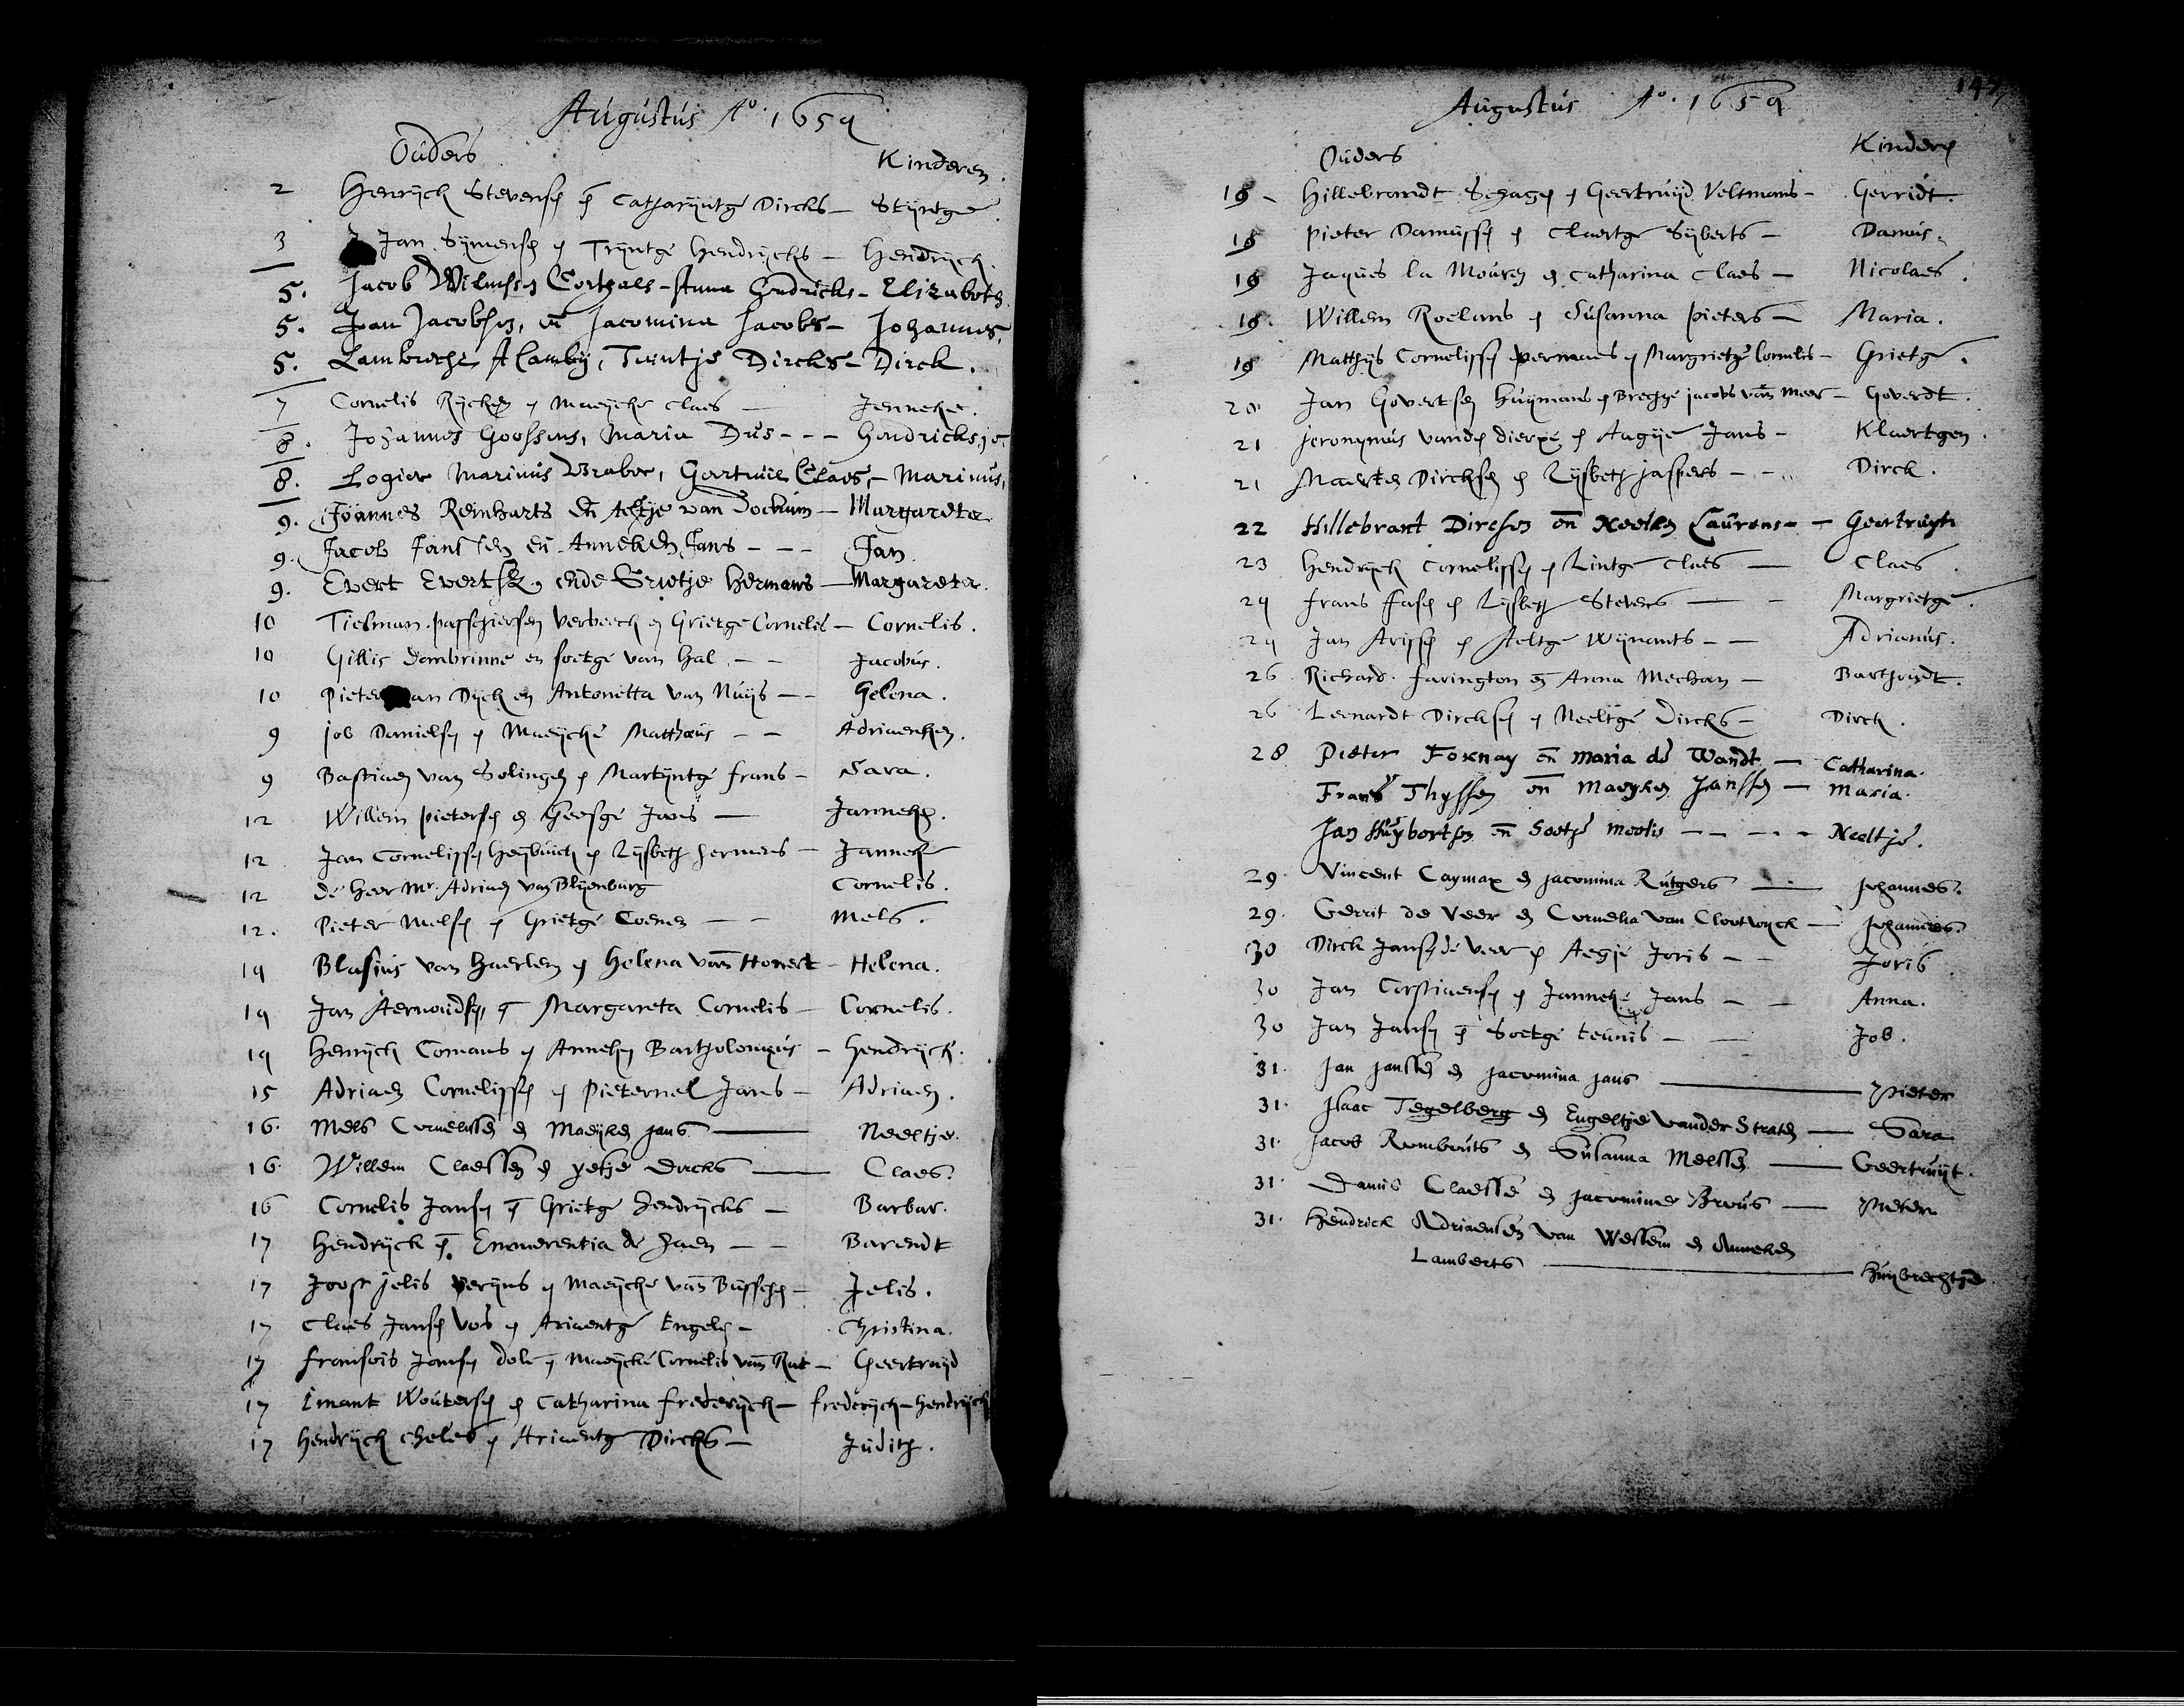 Augustus Ao. 1659
Ouders Kinderen.
2 Henrijck Stevensen en Catharijntge Dircks - Stijntge.
3 Jan Sijmensen en Trijntge Hendrijcks - Hendrijck.
5. Jacob Wilmsen Corthals - Anna Hendricks - Elizabeth
5. Jan Jacobsen, en Jacomina Jacobs - Johannes,
5. Lambrecht Tuintje Dircks - Dirck.
7 Cornelis Rijcken en Maeijcke Claes - Jenneke.
8. Johannes Goossens, Maria Dus - - - Hendricksje.
8. Logier Marinus Braber, Geertruit Claes, - Marinus,
9. Joannes Reinharts en Aeltje van Dockum - Margareter
9. Jacob Janssen en Anneken Jans - - - Jan
9. Evert Evertsz, ende Grietje Hermans - Margareter.
10 Tielman passchiersen Verbeeck en Grietge Cornelis - Cornelis.
10 Gillis Dambrinne en soetge van Hal - - Jacobus.
10 Pieter van Dijck en Antonitta van Nuijs - - Helena.
9 Job Danielsen en Maeijcke Matthæus - - Adriaenken.
9 Bastiaen van Solingen en Martijntge frans - Sara.
12 Willem pietersen en Geesge Jans - Janneken.
12 Jan Cornelissen Heijbuick en Lijsbeth Hermens - Janneke
12 de Heer Mr. Adriaen van Blijenburg Cornelis.
12. Pieter Melsen en Grietge Coenen - - Mels.
14 Blasius van Haerlem en Helena van Honert - Helena.
14 Jan Aernoudsen, en Margareta Cornelis - Cornelis.
14 Henrijck Comans en Anneken Bartholomeus - Hendrijck.
15 Adriaen Cornelissen en Pieternel Jans - Adriaen.
16. Mels Cornelissen en Maeijken Jans - Neeltje.
16. Willem Claessen en Yefje Dircks - Claes.
16 Cornelis Jansen en Grietge Hendrijcks - Barbar.
17 Hendrijck en Emmerentia de Haen - - Barendt
17 Joost jelis verijns en Maeijcke van Busschen - Jelis.
17 Claes Jansen Vos en Ariaentge Engelen - Christina.
17 fransois Jansen dole en Maeijcke Cornelis van Rut - Geertruijd
17 Imant Woutersen en Catharina frederijck - frederijck-hendrijck
17 Hendrijck en Ariaentge Dircks - Judith.
147
Augustus Ao. 1659
Ouders Kinderen
19 - Hillebrandt Schagen en Geertruijd Veltmans - Gerridt.
19 Pieter Damissen en Claertge Sijberts - Damis.
19 Jaques la Mouren en Catharina Claes - Nicolaes.
19. Willem Roelans en Susanna pieters - Maria.
19 Matthijs Cornelissen vermaes en Margrietge Cornelis - Grietge.
20 Jan Govertsen Huijmans en Brechge jacobs van Meer - Goverdt.
21 Jeronymus vanden dierxe en Aegije Jans - Klaertgen.
21 Maerten Dircksen en Lijsbeth jaspers - - Dirck.
22 Hillebrant Dircsen en Neelken Laurens - - Geertruyt
23 Hendrijck Cornelissen en Lintge Claes - Claes.
24 frans Fasen en Lijsbeth Stevens - - Margrietge.
24 Jan Arissen en Aeltge Wijnants - - Adrianus.
26. Richard. farington en Anna Mechan - Barthridt.
26 Leenardt Dircksen en Neeltge Dircks - Dirck.
28 Pieter Foxnay en Maria de Wandt - Catharina.
Frans Thyssen en Maeyken Janssen - Maria.
Jan Huybertsen en Soetje Meelis - - - - Neeltje.
29. Vincent Caymax en Jacomina Rutgers - Johannes.
29. Gerrit de Veer en Cornelia van Clootwyck - Johannes.
30 Dirck Jansen de Veer en Aegje Joris - - Joris
30 Jan Corstiaensen en Janneke Jans - - Anna.
30 Jan Jansen en Soetge teunis - - Job.
31. Jan Janssen en Jacomina Jans - Pieter
31. Isaac Tegelberg en Engeltje vander Straten - Sara
31. Jacob Rombouts en Susanna Meelssen - Geertruijt.
31. Danis Claessen en Jacomina Brous - Pieter
31. Hendrick Adriaensen van Wessem en Anneken
Lamberts - Huijbrechtje